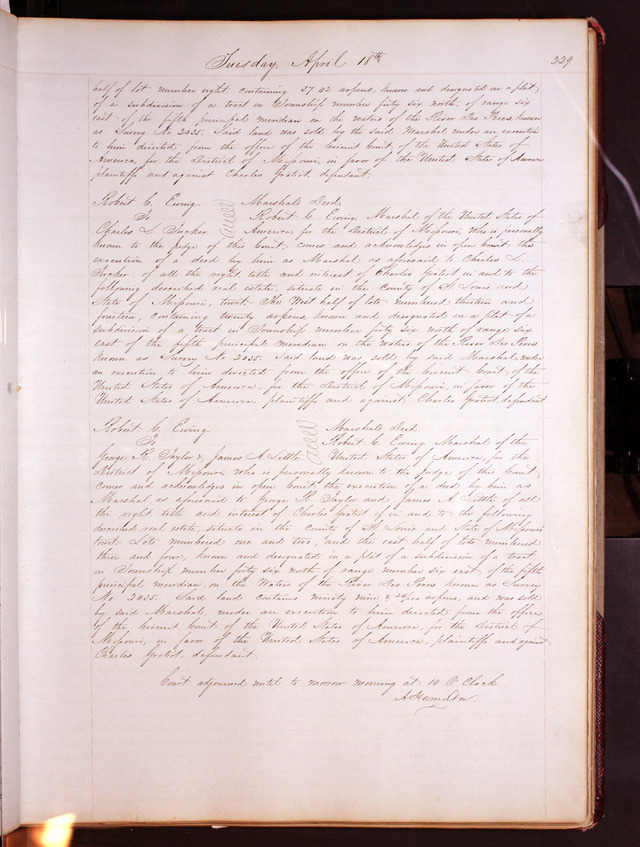 Tuesday, April 18th 229
half of lot number eight containing 37 42 arpens, known and designated on a plat
of a subdivision of a tract in Township number forty six north, of range six
east of the fifth principal meridian on the waters of the River Des Peres, known
as Survey No 2035. Said land was sold by the said Marshal under an execution
to him directed from the office of the Circuit Court, of the United States of
America, for the District of Missouri, in favor of the United States of America
plaintiffs and against Charles Gratiot, defendant.
Robert C. Ewing. Marshals Deed,
To Robert C. Ewing, Marshal of the United States of
Charles L. Tucker America, for the District of Missouri, who is personally
known to the judge of this Court, comes and acknowledges in open Court, the
execution of a deed by him as Marshal as aforesaid to Charles L.
Tucker of all the right title and interest of Charles Gratiot in and to the
following described real estate, situate in the County of St Louis and
State of Missouri, towit: The West half of lots numbered thirteen and
fourteen, containing twenty arpens, known and designated on a plat of a
subdivision of a tract in Township number forty six north of range six
east of the fifth principal meridian on the waters of the River Des Peres
known as Survey No. 2035. Said land was sold, by said Marshal, under
an execution to him directed from the office of the Circuit Court of the
United States of America, for the District of Missouri, in favor of the
United States of America, plaintiffs and against, Charles Gratiot defendant
Robert C. Ewing Marshals Deed
To Robert C. Ewing Marshal of the
George R. Taylor & James A Little United States of America, for the
District of Missouri, who is personally known to the judge of this Court,
comes and acknowledges in open Court, the execution of a deed by him as
Marshal as aforesaid to George R Taylor and James A Little of all
the right title and interest of Charles Gratiot in and to the following
described real estate, situate in the County of St Louis and State of Missouri
towit: Lots numbered one and two, and the east half of lots numbered
three and four, known and designated in a plat of a subdivision of a tract
in Township number forty six north of range number six east, of the fifth
principal meridian, on the Waters of the River Des Peres known as Survey
No 2035. Said land contains ninety nine & 24/100 arpens, and was sold
by said Marshal, under an execution to him directed from the office
of the Circuit Court of the United States of America, for the District of
Missouri, in favor of the United States of America, plaintiffs and against
Charles Gratiot, defendant.
Court adjourned until to morrow morning at 10 O'Clock
A Hamilton.